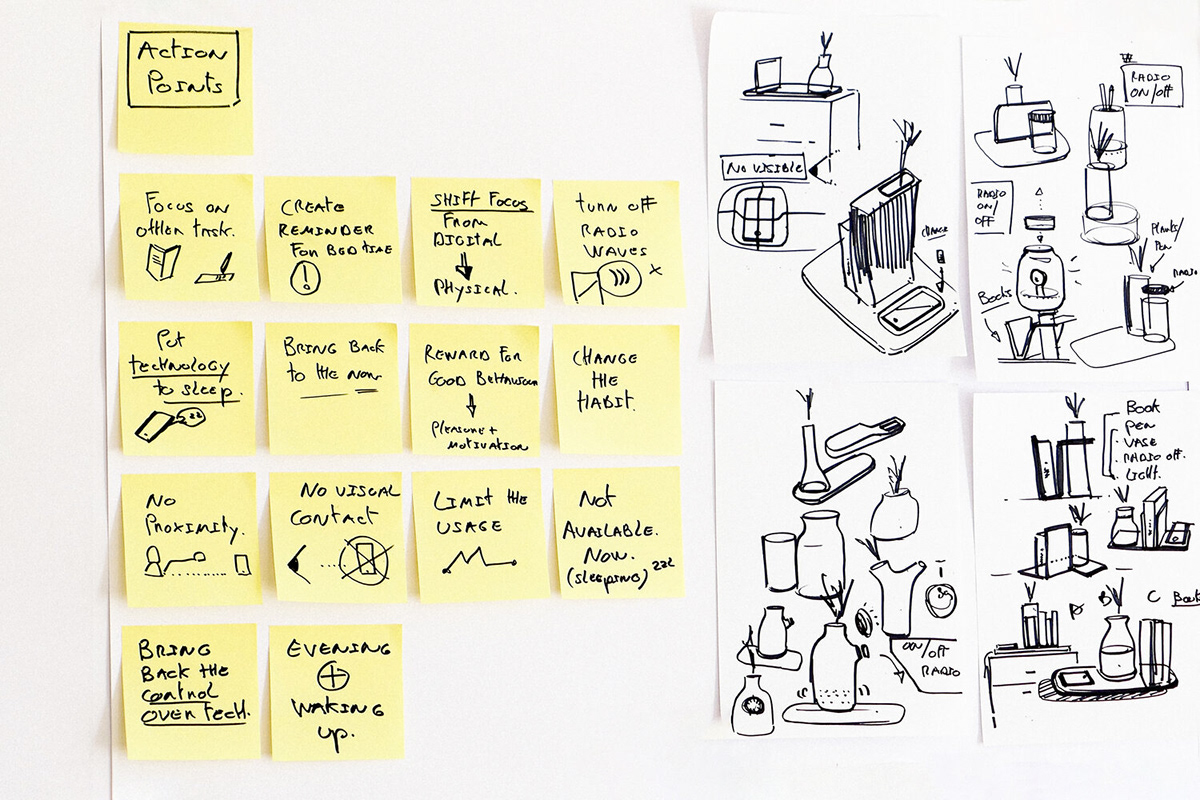 Action
Points
Focus on
other task.
CREATE
REMINDER
For BED TIME
!
SHIFT FOCUS
From
DIGITAL
PHYSICAL.
turn off
RADIO
WAVES
x
Put
technology
to sleep.
zz
BRING BACK
to the now
REWARD FOR
GOOD BEHAVIOUR
PLEASURE +
MOTIVATION
CHANGE
THE
HABIT.
No
Proximity.
No VISUAL
CONTACT
LIMIT the
USAGE
Not
AVAILABLE.
Now.
(sleeping) zzz
BRING
BACK the
control
OVER TECH.
EVENING
+
WAKING
up.
No VISIBLE
CHARGE
RADIO
ON/OFF
RADIO
ON/
OFF
Plants/
Pen
RADIO
Books
ON/OFF
RADIO
Book
PEN
VASE
RADIO OFF.
LIGHT.
A
B
C